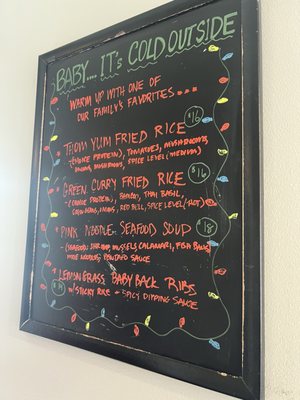 BABY... IT'S COLD OUTSIDE
WARM UP WITH ONE OF
OUR FAMILY'S FAVORITES...
* THOM YUM FRIED RICE $16
- (CHOICE PROTEIN), TOMATOES, MUSHROOMS,
ONIONS, SPICE LEVEL (MEDIUM)
* GREEN CURRY FRIED RICE $16
- (CHOICE PROTEIN), BAMBOO, THAI BASIL,
GREEN BEANS, ONIONS, RED BELL, SPICE LEVEL (HOT)
* PINK NOODLE SEAFOOD SOUP $18
- (SEAFOOD: SHRIMP, MUSSELS, CALAMARI, FISH BALLS)
RICE NOODLES, SAUCE
* LEMONGRASS BABY BACK RIBS
$14 W/ STICKY RICE + SPICY DIPPING SAUCE